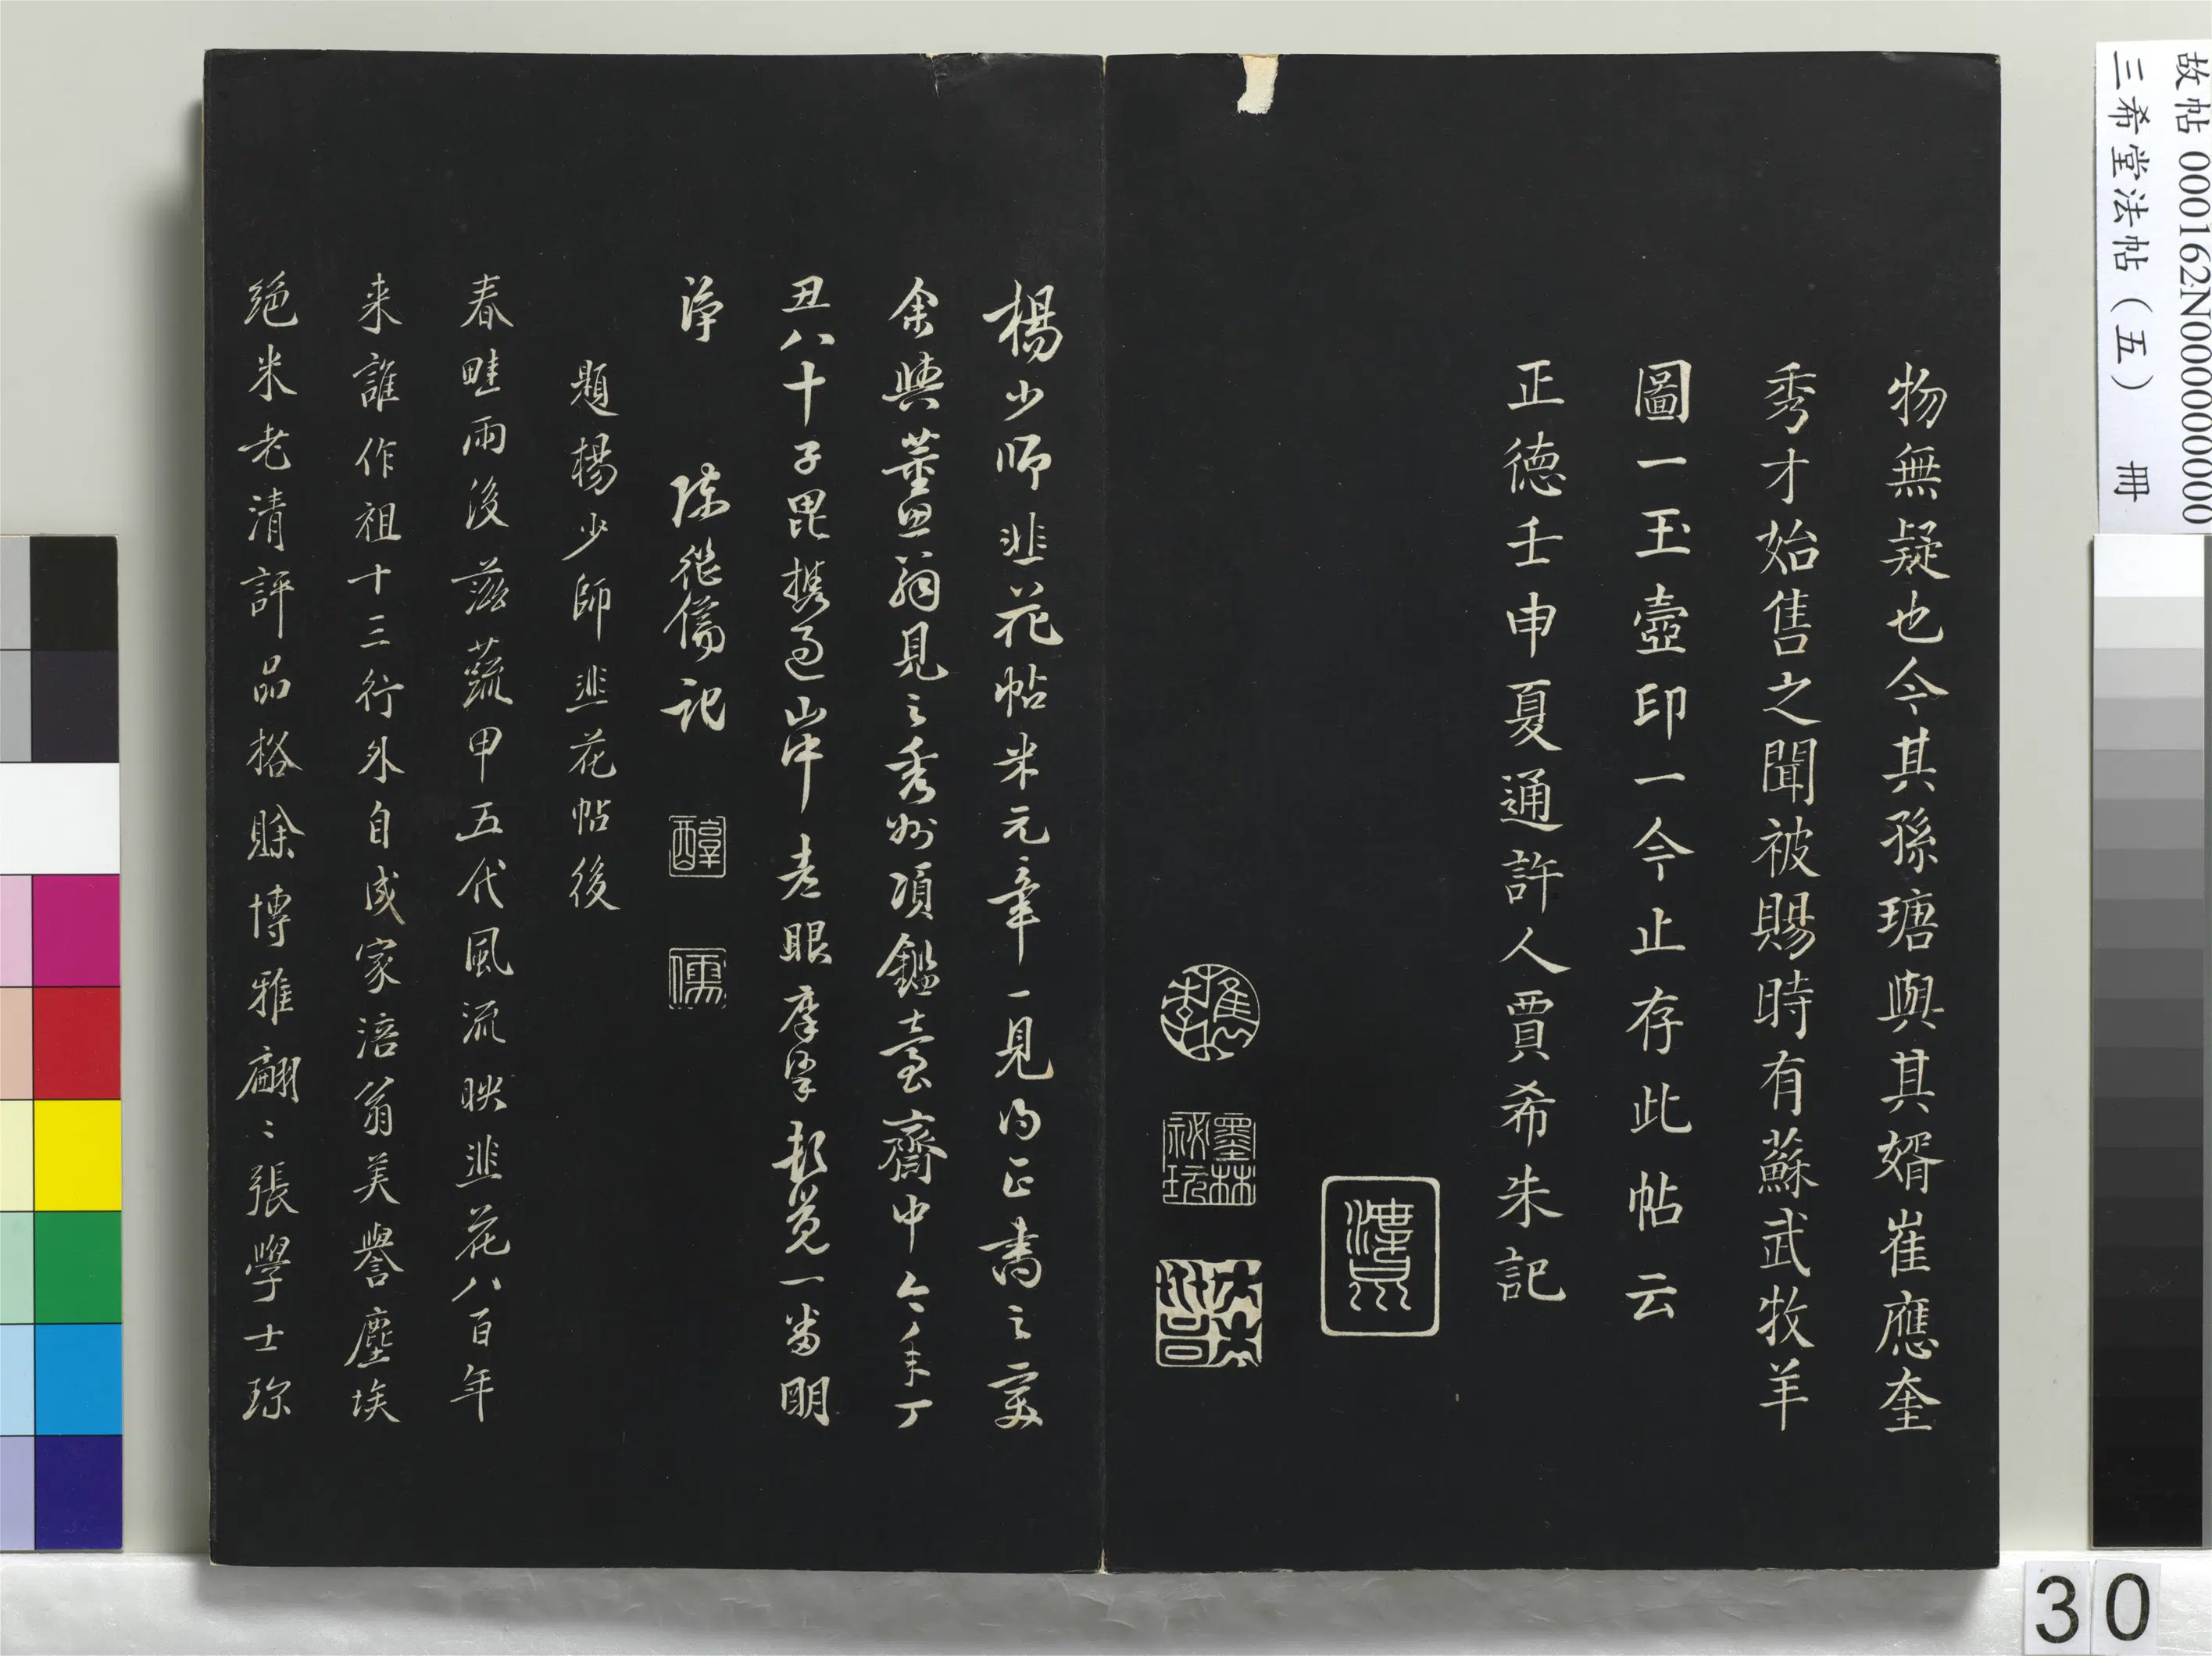 故帖 000162N000000000
三希堂法帖（五） 冊
物無疑也今其孫瑭與其婿崔應奎
秀才始售之聞被賜時有蘇武牧羊
圖一玉壺印一今止存此帖云
正德壬申夏通許人賈希朱記
墨林秘玩
楊少師韭花帖米元章一見為正書之変
余與董思翁見之秀州項鑑臺齋中今年丁
丑八十子毘携過山中老眼摩挲頓覺一番明
淨 陳繼儒記
醇 儒
題楊少師韭花帖後
春畦雨後滋蔬甲五代風流映韭花八百年
来誰作祖十三行外自成家涪翁美譽塵埃
絕米老清評品格賒博雅翩〻張學士珎
30